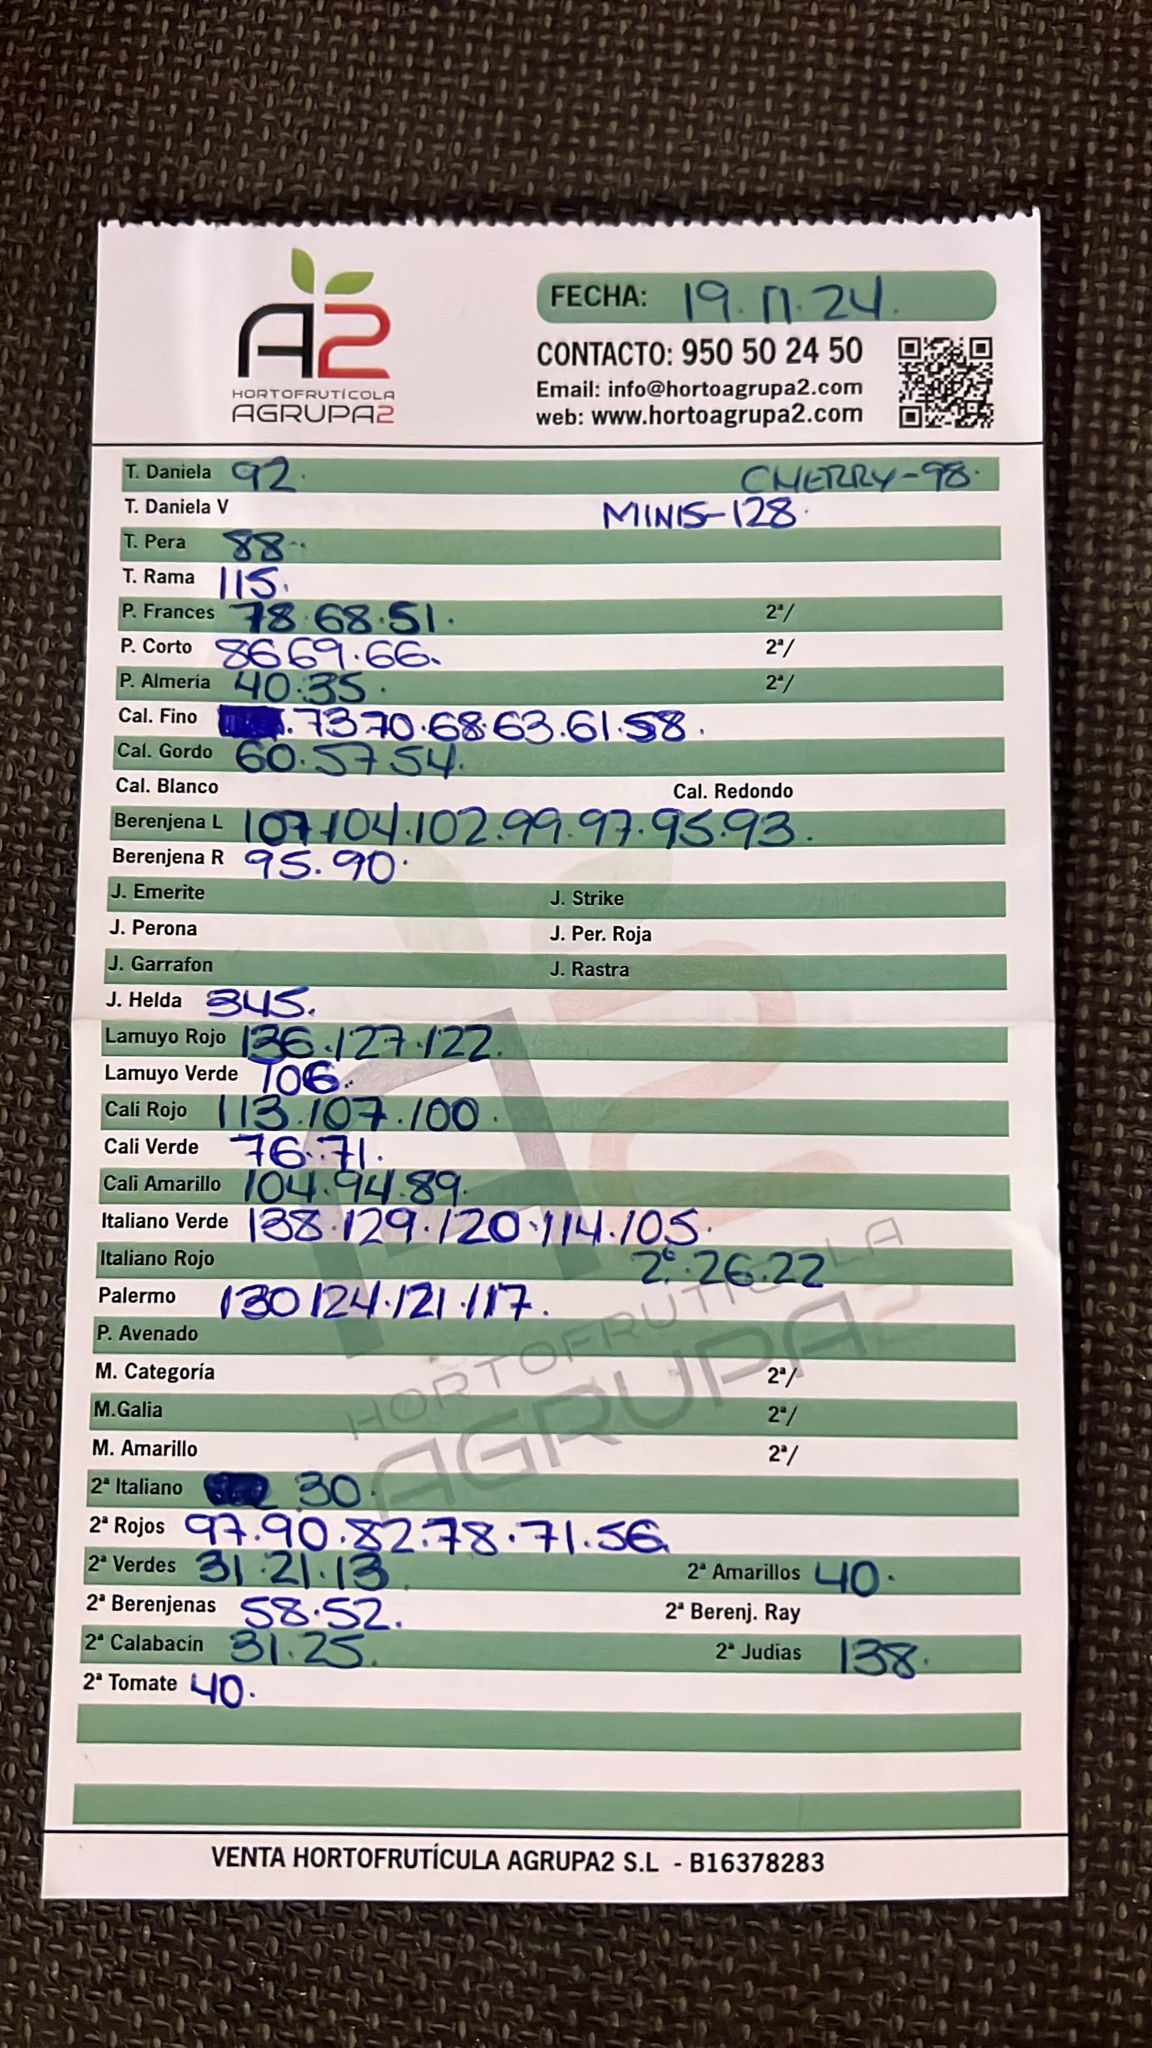 A2
HORTOFRUTÍCOLA
AGRUPA2
FECHA: 19.11.24.
CONTACTO: 950 50 24 50
Email: info@hortoagrupa2.com
web: www.hortoagrupa2.com
T. Daniela 92. CHERRY-98.
T. Daniela V MINIS-128.
T. Pera 88.
T. Rama 115.
P. Frances 78.68.51. 2ª/
P. Corto 86 69.66. 2ª/
P. Almería 40.35. 2ª/
Cal. Fino .73 70.68.63.61.58.
Cal. Gordo 60.57 54.
Cal. Blanco Cal. Redondo
Berenjena L 107.104.102.99.97.95.93.
Berenjena R 95.90.
J. Emerite J. Strike
J. Perona J. Per. Roja
J. Garrafon J. Rastra
J. Helda 345.
Lamuyo Rojo 136.127.122.
Lamuyo Verde 106.
Cali Rojo 113.107.100.
Cali Verde 76.71.
Cali Amarillo 104.94.89.
Italiano Verde 138.129.120.114.105.
Italiano Rojo 2ª.26.22
Palermo 130 124.121.117.
P. Avenado
M. Categoría 2ª/
M.Galia 2ª/
M. Amarillo 2ª/
2ª Italiano 30.
2ª Rojos 97.90.82.78.71.56.
2ª Verdes 31.21.13 2ª Amarillos 40.
2ª Berenjenas 58.52. 2ª Berenj. Ray
2ª Calabacín 31.25. 2ª Judías 138.
2ª Tomate 40.
HORTOFRUTÍCOLA
AGRUPA2
VENTA HORTOFRUTÍCULA AGRUPA2 S.L - B16378283